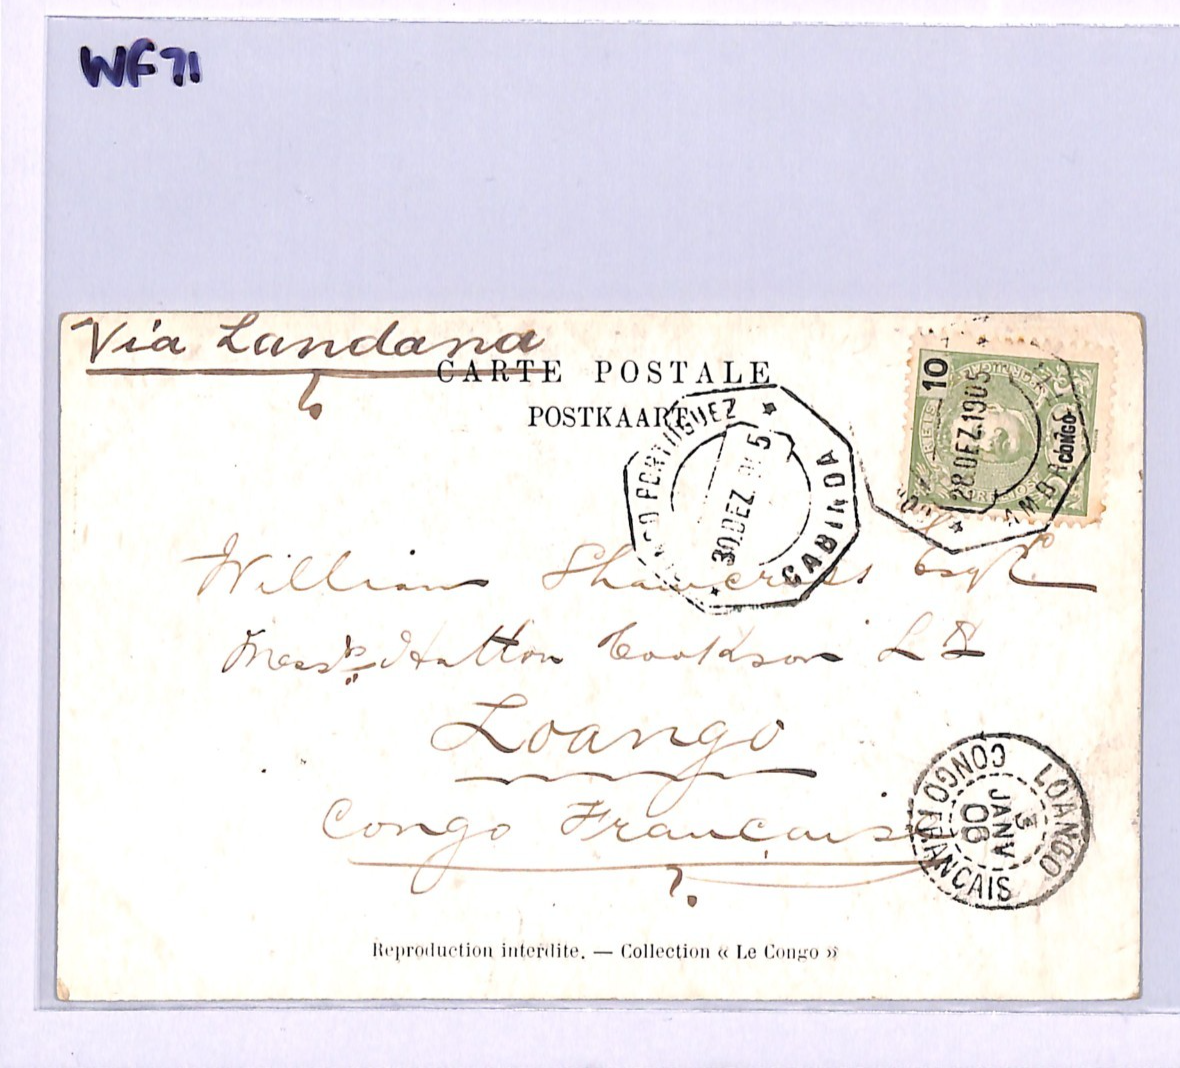 WF71
Via Landana
CARTE POSTALE
POSTKAART
CONGO PORTUGUEZ
30 DEZ 1905
CABINDA
REIS 10
28 DEZ.1905
CONGO
William Shawcross Esqr.
Messrs Hatton Cookson Ld
Loango
Congo Français
LOANGO
3
JANV
06
CONGO FRANCAIS
Reproduction interdite. — Collection « Le Congo »